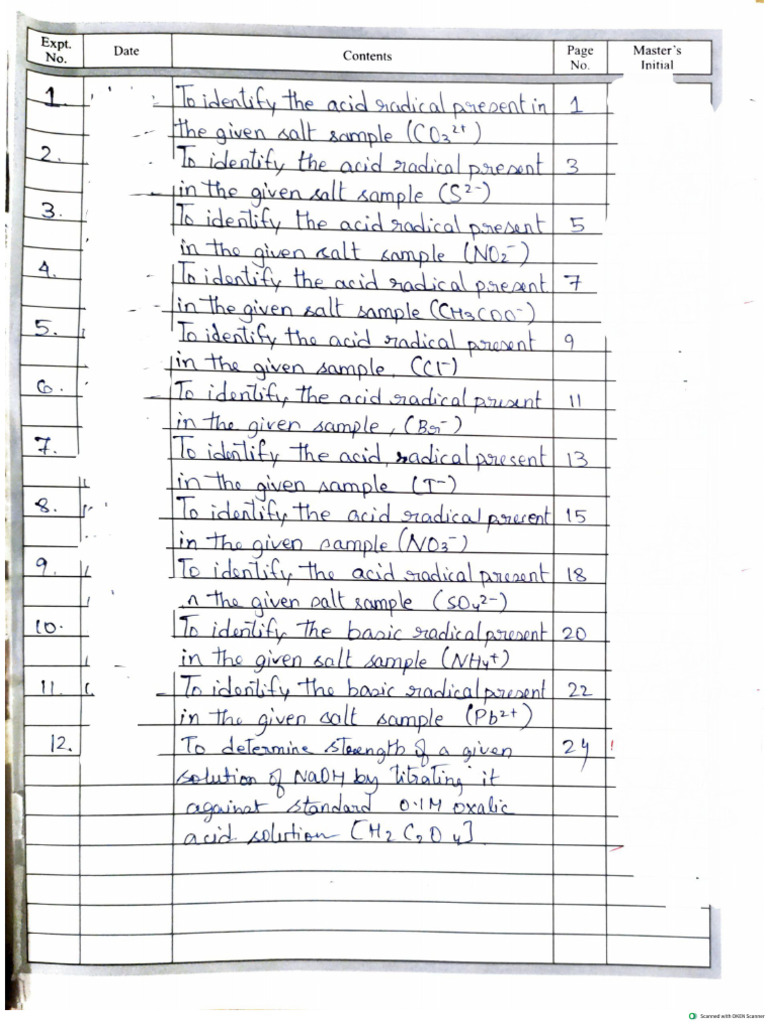 Expt. No. Date Contents Page No. Master's Initial
1. To identify the acid radical present in 1
the given salt sample (CO₃²⁺)
2. To identify the acid radical present 3
in the given salt sample (S²⁻)
3. To identify the acid radical present 5
in the given salt sample (NO₂⁻)
4. To identify the acid radical present 7
in the given salt sample (CH₃COO⁻)
5. To identify the acid radical present 9
in the given sample, (Cl⁻)
6. To identify the acid radical present 11
in the given sample, (Br⁻)
7. To identify the acid radical present 13
in the given sample (I⁻)
8. To identify the acid radical present 15
in the given sample (NO₃⁻)
9. To identify the acid radical present 18
n the given salt sample (SO₄²⁻)
10. To identify the basic radical present 20
in the given salt sample (NH₄⁺)
11. To identify the basic radical present 22
in the given salt sample (Pb²⁺)
12. To determine strength of a given 24
solution of NaOH by titrating it
against standard 0.1M oxalic
acid solution [H₂C₂O₄]
Scanned with OKEN Scanner